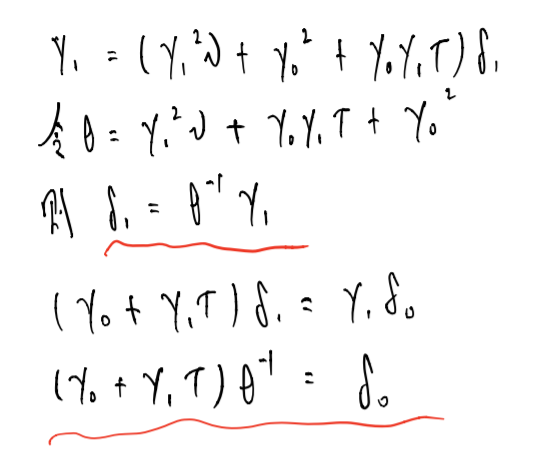 γ₁ = (γ₁²ν + γ₀² + γ₀γ₁T) δ₁
令 θ = γ₁²ν + γ₀γ₁T + γ₀²
则 δ₁ = θ⁻¹ γ₁
(γ₀ + γ₁T) δ₁ = γ₁ δ₀
(γ₀ + γ₁T) θ⁻¹ = δ₀